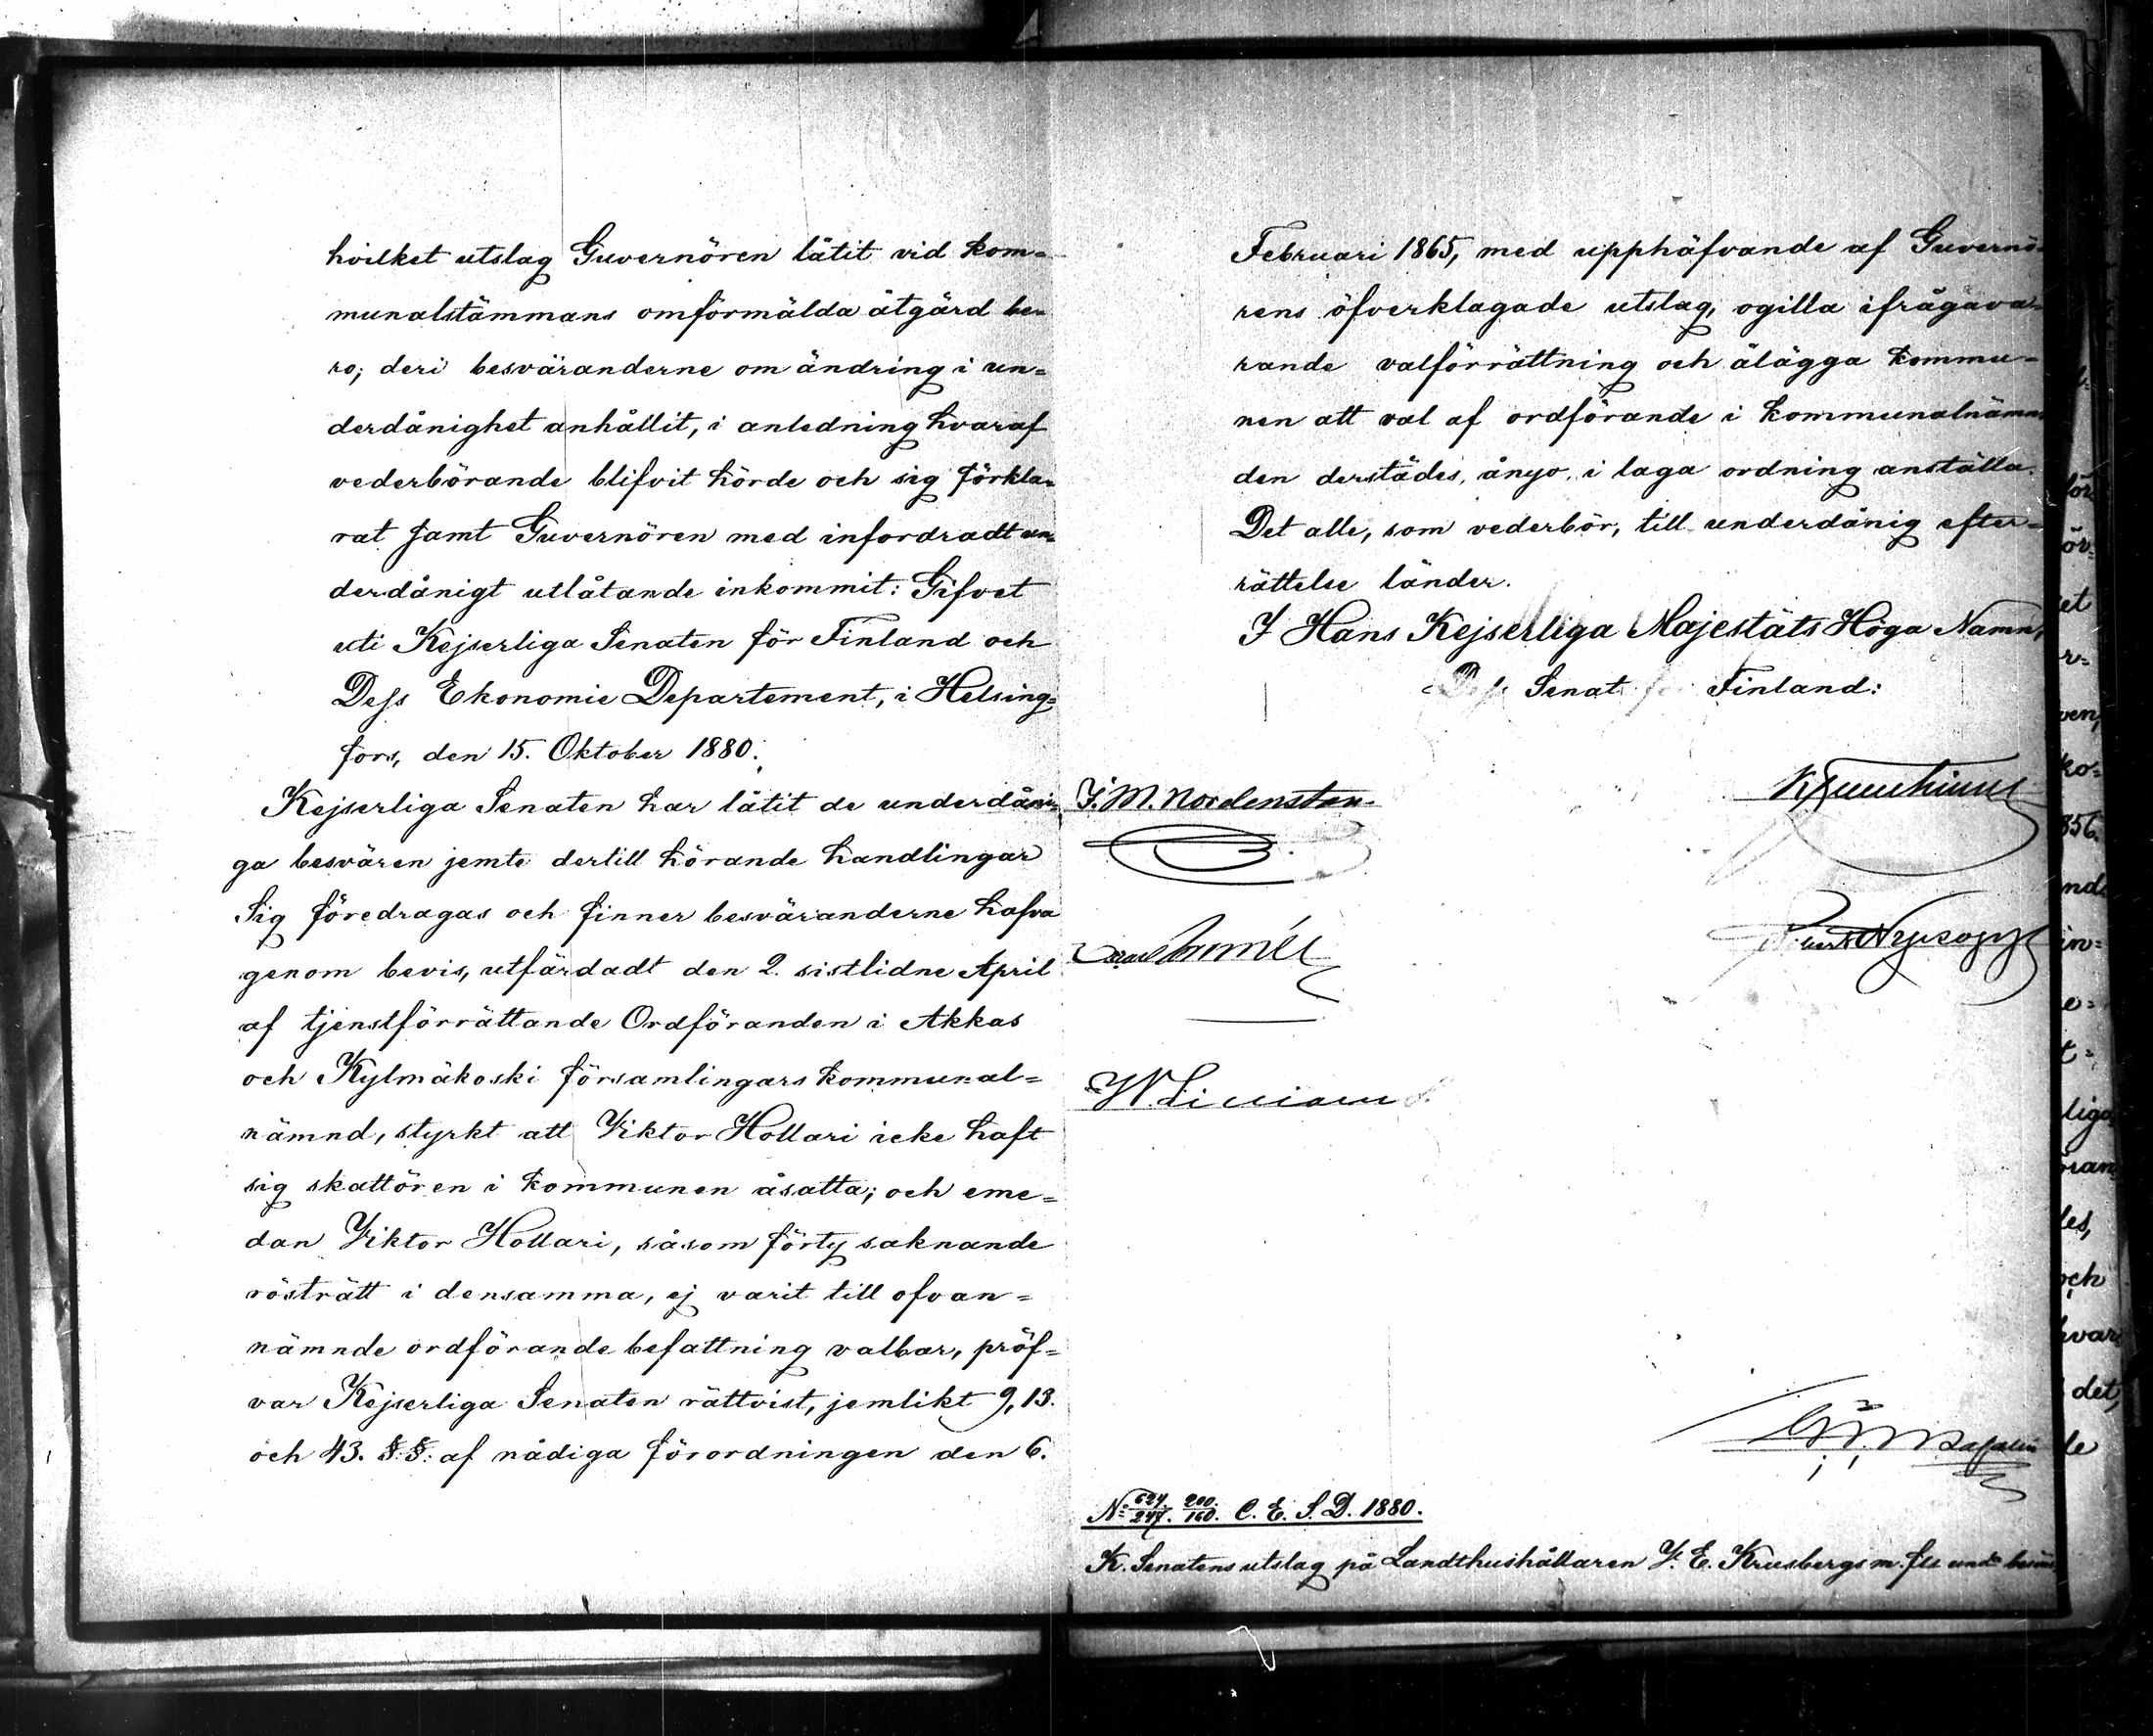 hvilket utslag Guvernören låtit vid kom=
munalstämmans omförmälda åtgärd be=
ro; deri besväranderne om ändring i un=
derdånighet anhållit, i anledning hvaraf
vederbörande blifvit hörde och sig förkla=
rat samt Guvernören med infordradt un=
derdånigt utlåtande inkommit: Gifvet
uti Kejserliga Senaten för Finland och
Dess Ekonomie Departement, i Helsing=
fors, den 15. Oktober 1880.
Kejserliga Senaten har låtit de underdåni=
ga besvären jemte dertill hörande handlingar
Sig föredragas och finner besväranderne hafva
genom bevis, utfärdadt den 2. sistlidne April
af tjenstförrättande Ordföranden i Akkas
och Kylmäkoski församlingars kommunal=
nämnd, styrkt att Viktor Hollari icke haft
sig skattören i kommunen åsatta; och eme=
dan Viktor Hollari, såsom förty saknande
rösträtt i densamma, ej varit till ofvan=
nämnde ordförande befattning valbar, pröf=
var Kejserliga Senaten rättvist, jemlikt 9, 13.
och 43. §.§. af nådiga förordningen den 6.
Februari 1865, med upphäfvande af Guvernö=
rens öfverklagade utslag, ogilla ifrågava=
rande valförrättning och ålägga kommu=
nen att val af ordförande i kommunalnämn
den derstädes, ånyo, i laga ordning anställa.
Det alle, som vederbör, till underdånig efter=
rättelse länder.
I Hans Kejserliga Majestäts Höga Namn,
Dess Senat för Finland:
J. M. Nordenstam.
No 624./247. 200./160. C. E. S. D. 1880.
K. Senatens utslag på Landthushållaren J. E. Krusbergs m. fl. und.